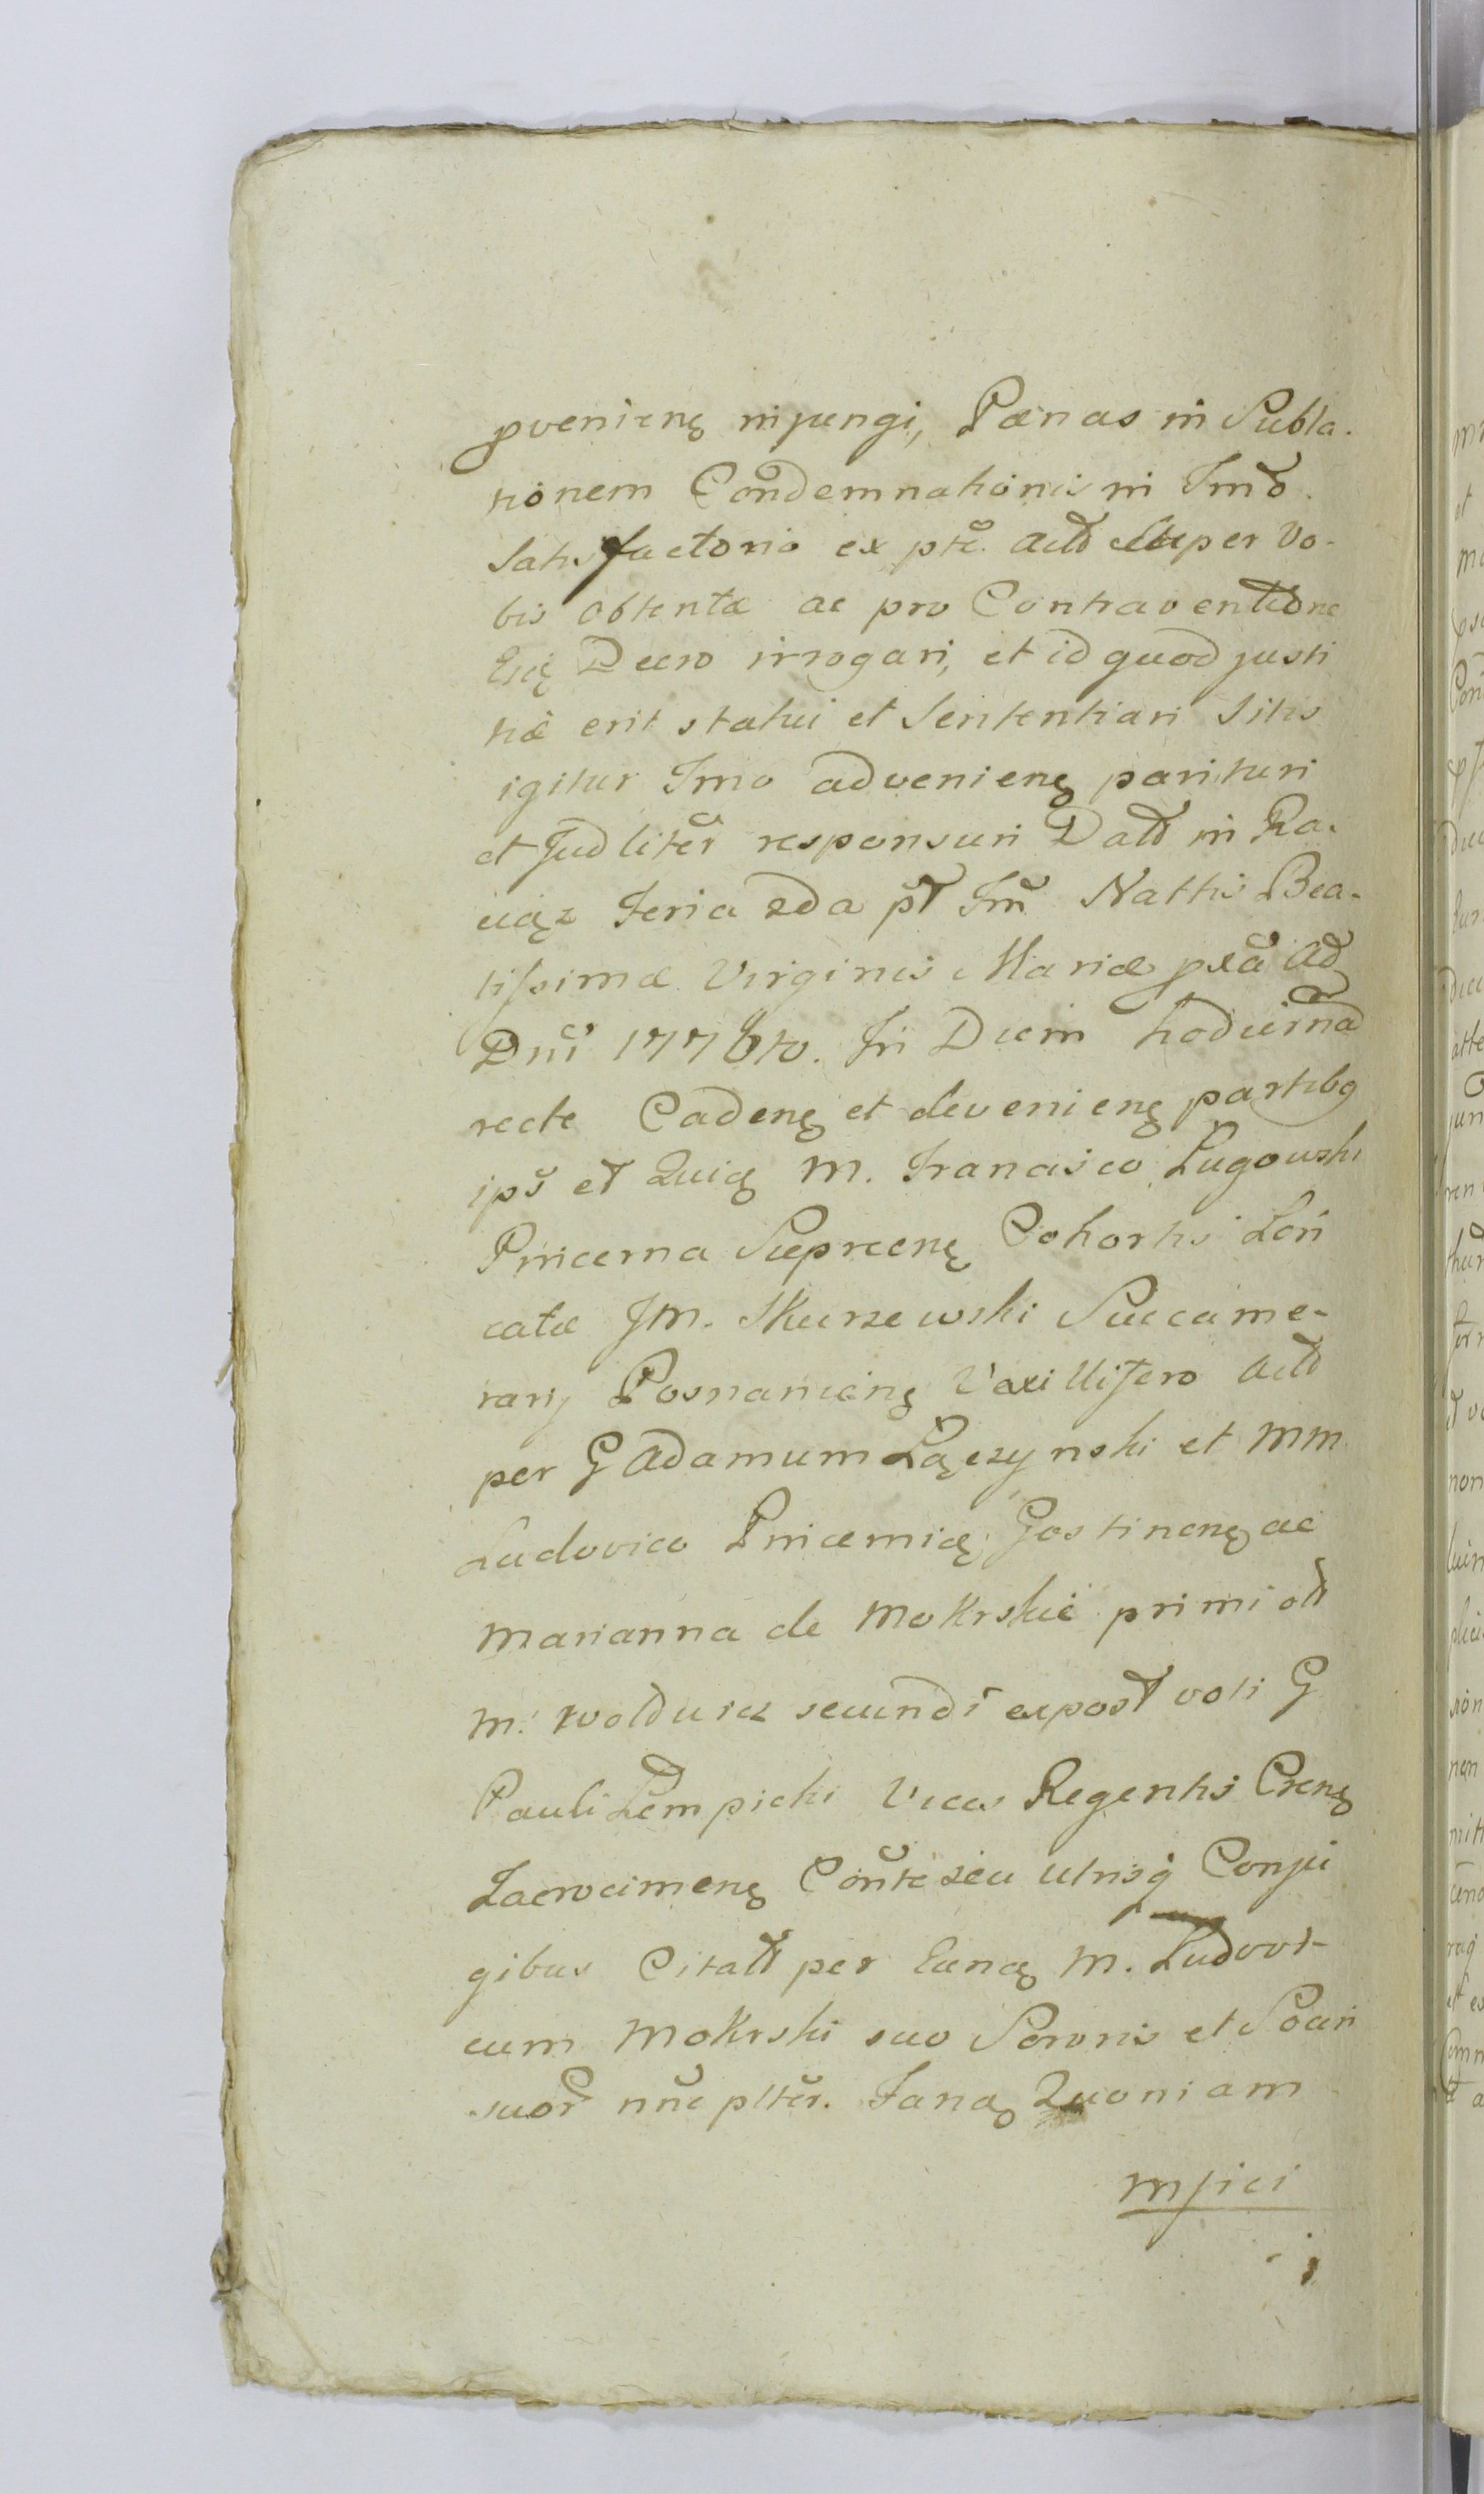 pvenienę injungi, Pænas in Subla-
tionem Condemnationis in Tmo
Satisfactorio ex pte Actt Super Vo-
bis obtentæ ac pro Contraventione
Ejq Decro irrogari, et id quod justi
tiæ erit statui et Sententiari Sitis
igitur Tmo advenienę parituri
et Judliter responsuri Datt in Ra-
Feria 2da pt Tm Nattis Bea-
tissimæ Virginis Mariæ pxa Ad
Dni 1776to. In Diem hodierna
recte Cadenę et devenienę partibg
ips et Quią M. Francisco Lugowski
Pincerna Cohortis Lori
catæ JM. Skurzewski Succame-
rarij Posnanienę Vexillifero Actt
per G Adamum Łączynski et MM
Ludovico Gostinenę ac
Marianna de Mokrskie primi ott
M. secundi expost voti G
Pauli Lempicki Vices Regentis Crenę
Conte seu utrisq Conju
gibus Citatt per M. Ludovi-
cum Mokrski suo Sororis et Socri
suor nne plter. Quoniam
injici